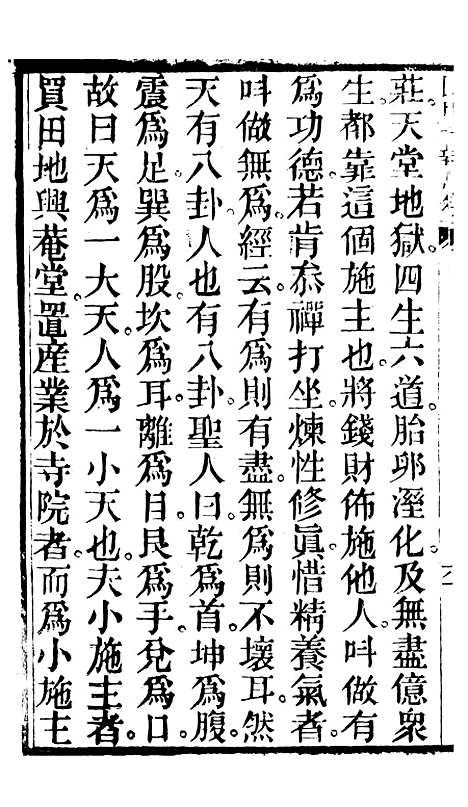 莊。天堂地獄。四生六道。胎卵溼化。及無盡億衆
生都靠這個施主也。將錢財佈施他人。呌做有
爲功德。若肯叅禪打坐。煉性修眞。惜精養氣者。
呌做無爲。經云。有爲則有盡。無爲則不壞耳。然
天有八卦。人也有八卦。聖人曰。乾爲首。坤爲腹。
震爲足。巽爲股。坎爲耳。離爲目。艮爲手。兌爲口。
故曰天爲一大天。人爲一小天也。夫小施主者。
買田地與菴堂。置產業於寺院者。而爲小施主